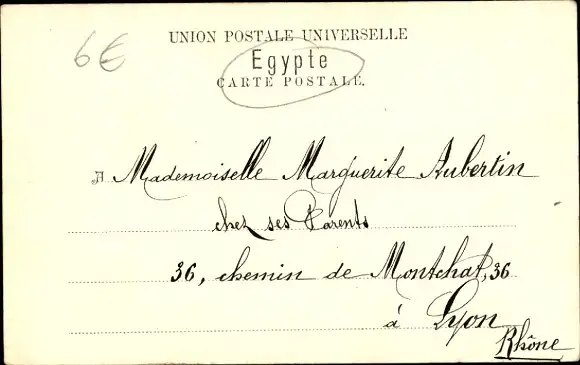 6€
UNION POSTALE UNIVERSELLE
Egypte
CARTE POSTALE.
A Mademoiselle Marguerite Aubertin
chez ses Parents
36, chemin de Montchat, 36
à Lyon
Rhône